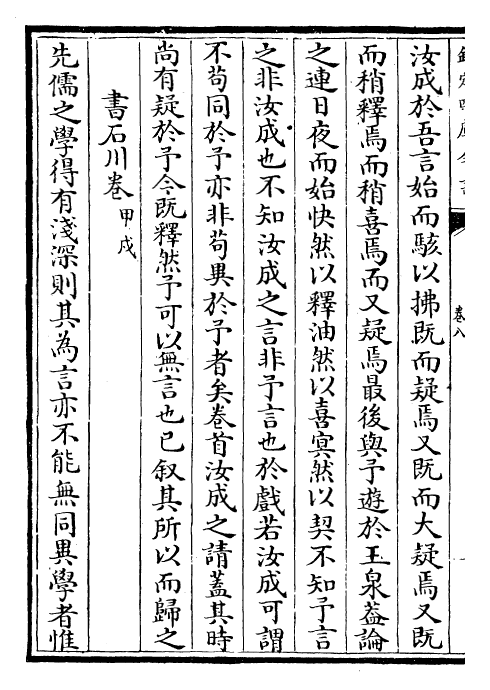 欽定四庫全書
卷八
汝成於吾言始而駭以拂既而疑焉又既而大疑焉又既
而稍釋焉而稍喜焉而又疑焉最後與予遊於玉泉葢論
之連日夜而始快然以釋油然以喜冥然以契不知予言
之非汝成也不知汝成之言非予言也於戲若汝成可謂
不苟同於予亦非苟異於予者矣卷首汝成之請蓋其時
尚有疑於予今既釋然予可以無言也已叙其所以而歸之
書石川卷甲戌
先儒之學得有淺深則其為言亦不能無同異學者惟